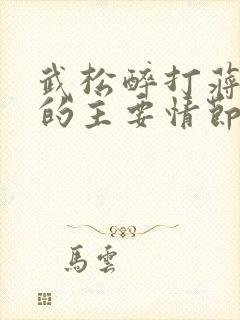 武松醉打蒋
的主要情節
馬雲